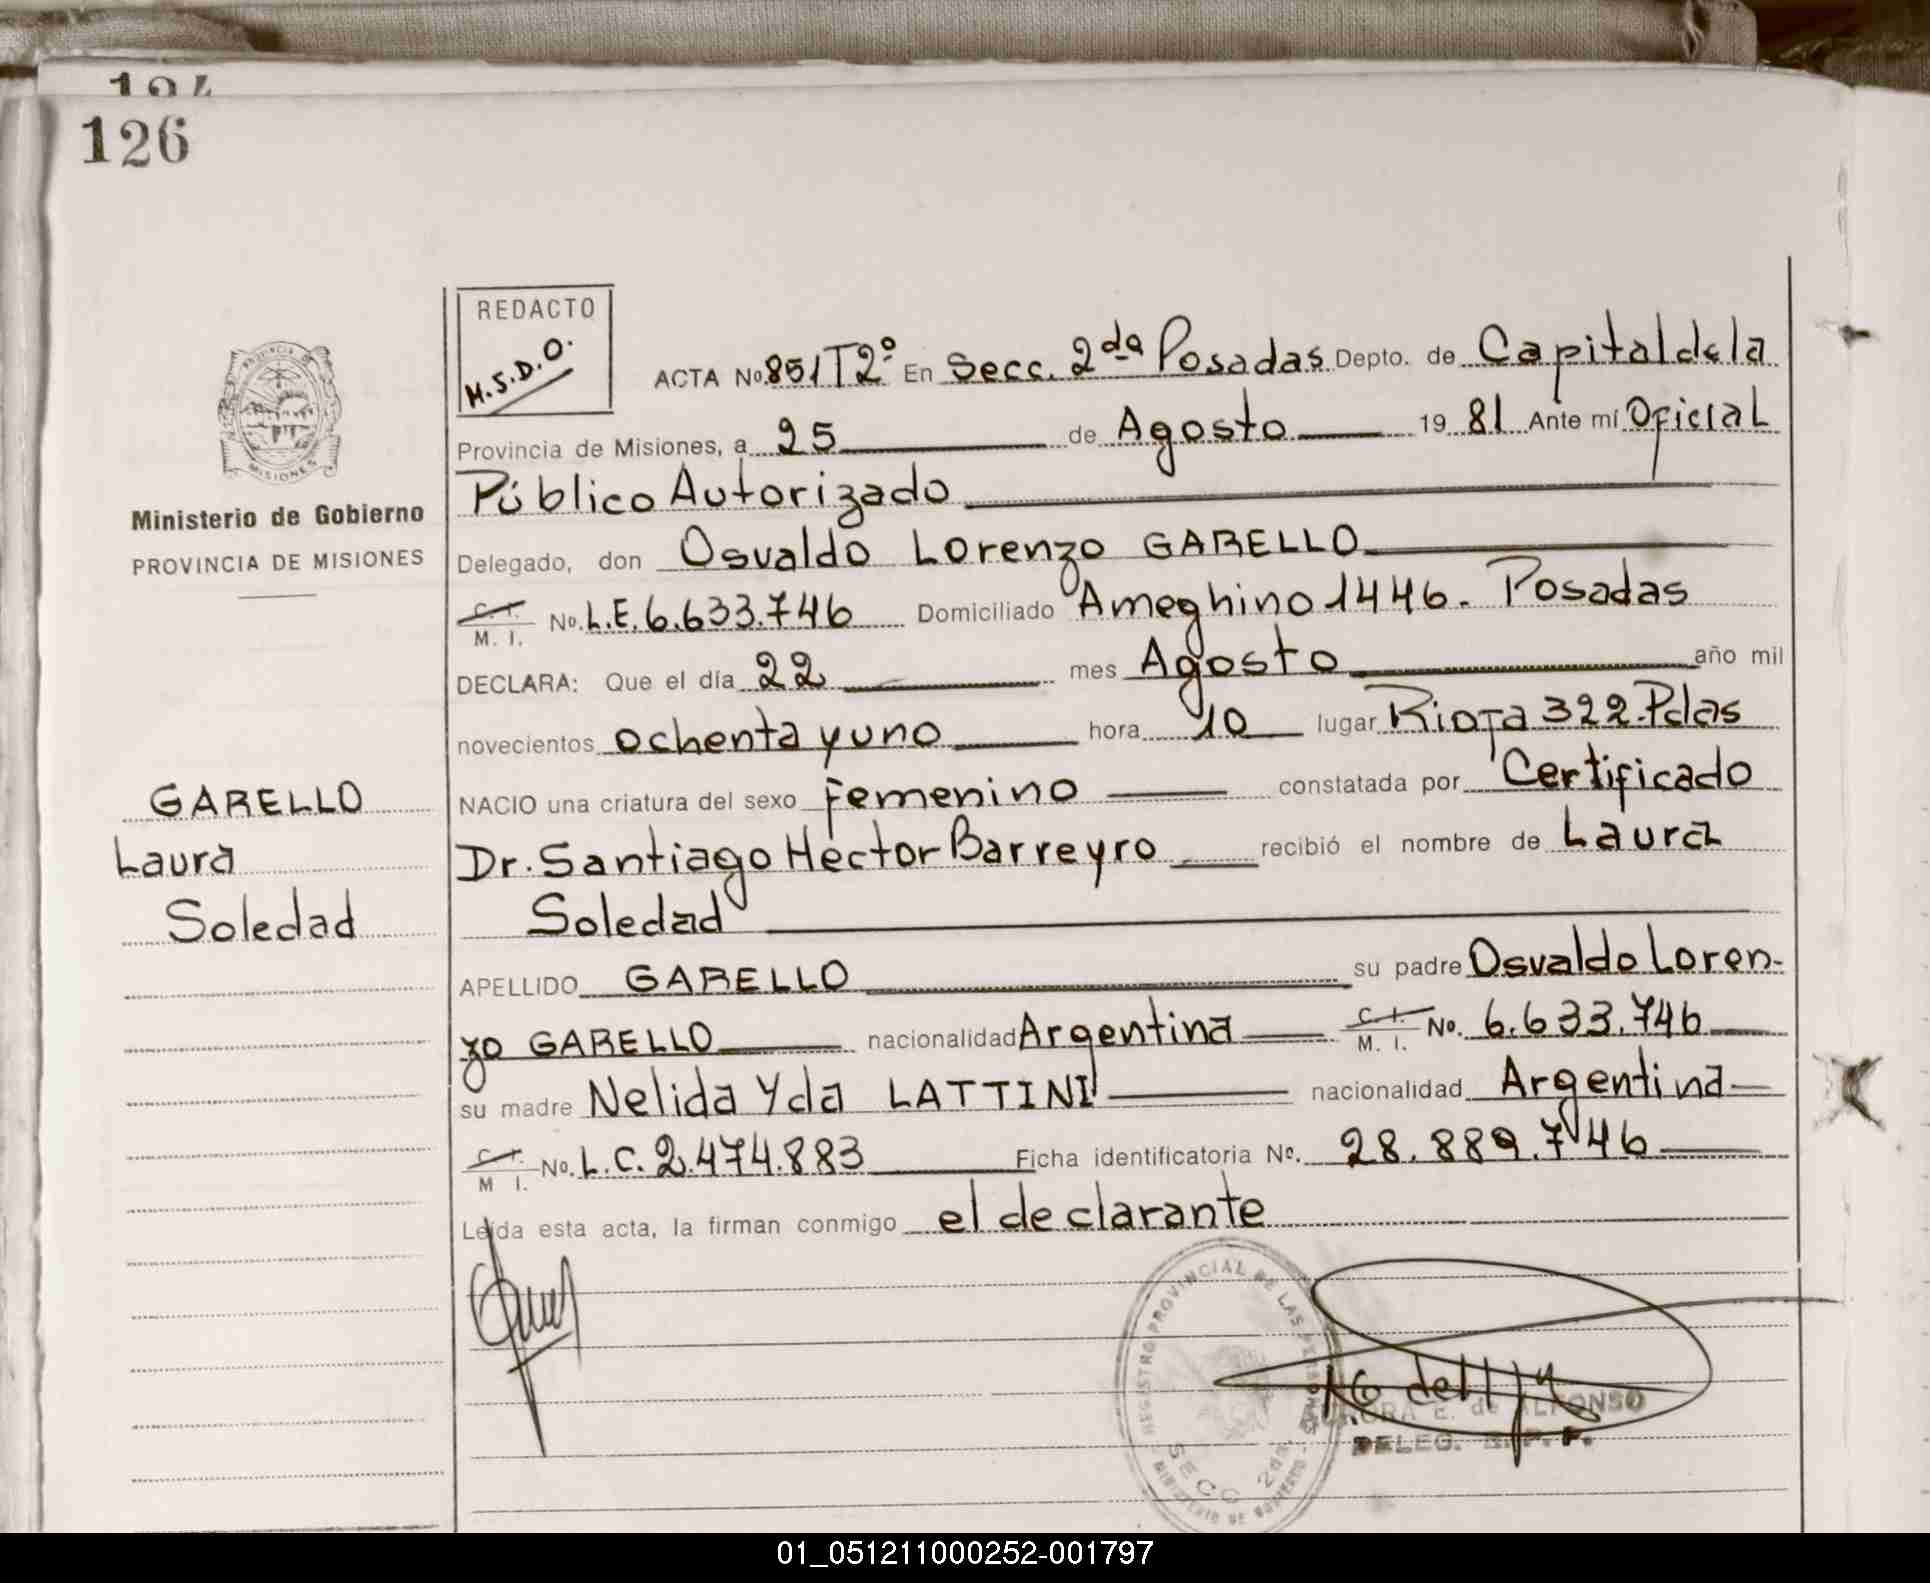 124
126
REDACTO
M.S.D.O.
ACTA No. 851 T2º En Secc. 2da Posadas Depto. de Capital de la
Provincia de Misiones, a 25 de Agosto 1981 Ante mí Oficial
Público Autorizado
PROVINCIA DE MISIONES
Ministerio de Gobierno
PROVINCIA DE MISIONES
Delegado, don Osvaldo Lorenzo GARELLO
C. I. M. I. No. L.E. 6.633.746 Domiciliado Ameghino 1446. Posadas
DECLARA: Que el día 22 mes Agosto año mil
novecientos ochenta y uno hora 10 lugar Rioja 322. Pdas
GARELLO
Laura
Soledad
NACIO una criatura del sexo femenino constatada por Certificado
Dr. Santiago Hector Barreyro recibió el nombre de Laura
Soledad
APELLIDO GARELLO su padre Osvaldo Loren-
zo GARELLO nacionalidad Argentina C. I. M. I. No. 6.633.746
su madre Nelida Yda LATTINI nacionalidad Argentina
C. I. M I. No. L.C. 2.474.883 Ficha identificatoria Nº. 28.889.746
Leída esta acta, la firman conmigo el declarante
REGISTRO PROVINCIAL DE LAS PERSONAS
SECC 2da.
MINISTERIO DE GOBIERNO
E. de ALFONSO
DELEG. R.P.P.
01_051211000252-001797